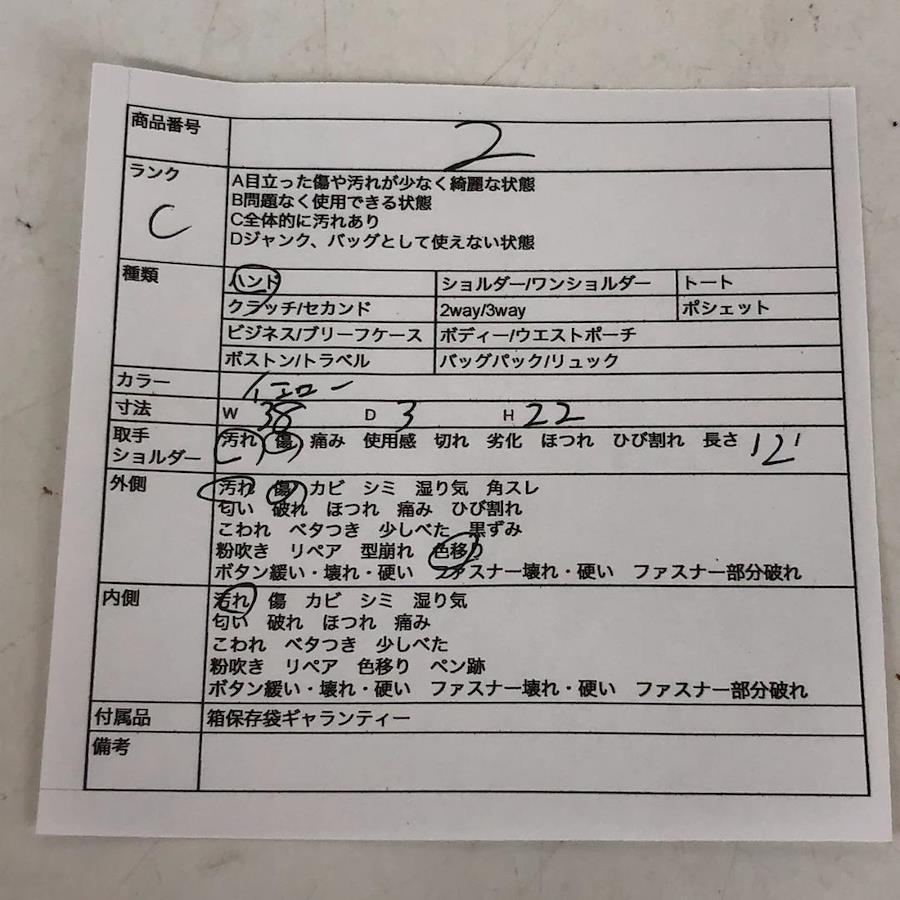 商品番号 2
ランク C
A目立った傷や汚れが少なく綺麗な状態
B問題なく使用できる状態
C全体的に汚れあり
Dジャンク、バッグとして使えない状態
種類 ハンド ショルダー/ワンショルダー トート
クラッチ/セカンド 2way/3way ポシェット
ビジネス/ブリーフケース ボディー/ウエストポーチ
ボストン/トラベル バッグパック/リュック
カラー イエロー
寸法 W 38 D 3 H 22
取手 汚れ 傷 痛み 使用感 切れ 劣化 ほつれ ひび割れ 長さ 12
ショルダー
外側 汚れ 傷 カビ シミ 湿り気 角スレ
匂い 破れ ほつれ 痛み ひび割れ
こわれ ベタつき 少しべた 黒ずみ
粉吹き リペア 型崩れ 色移り
ボタン緩い・壊れ・硬い ファスナー壊れ・硬い ファスナー部分破れ
内側 汚れ 傷 カビ シミ 湿り気
匂い 破れ ほつれ 痛み
こわれ ベタつき 少しべた
粉吹き リペア 色移り ペン跡
ボタン緩い・壊れ・硬い ファスナー壊れ・硬い ファスナー部分破れ
付属品 箱保存袋ギャランティー
備考